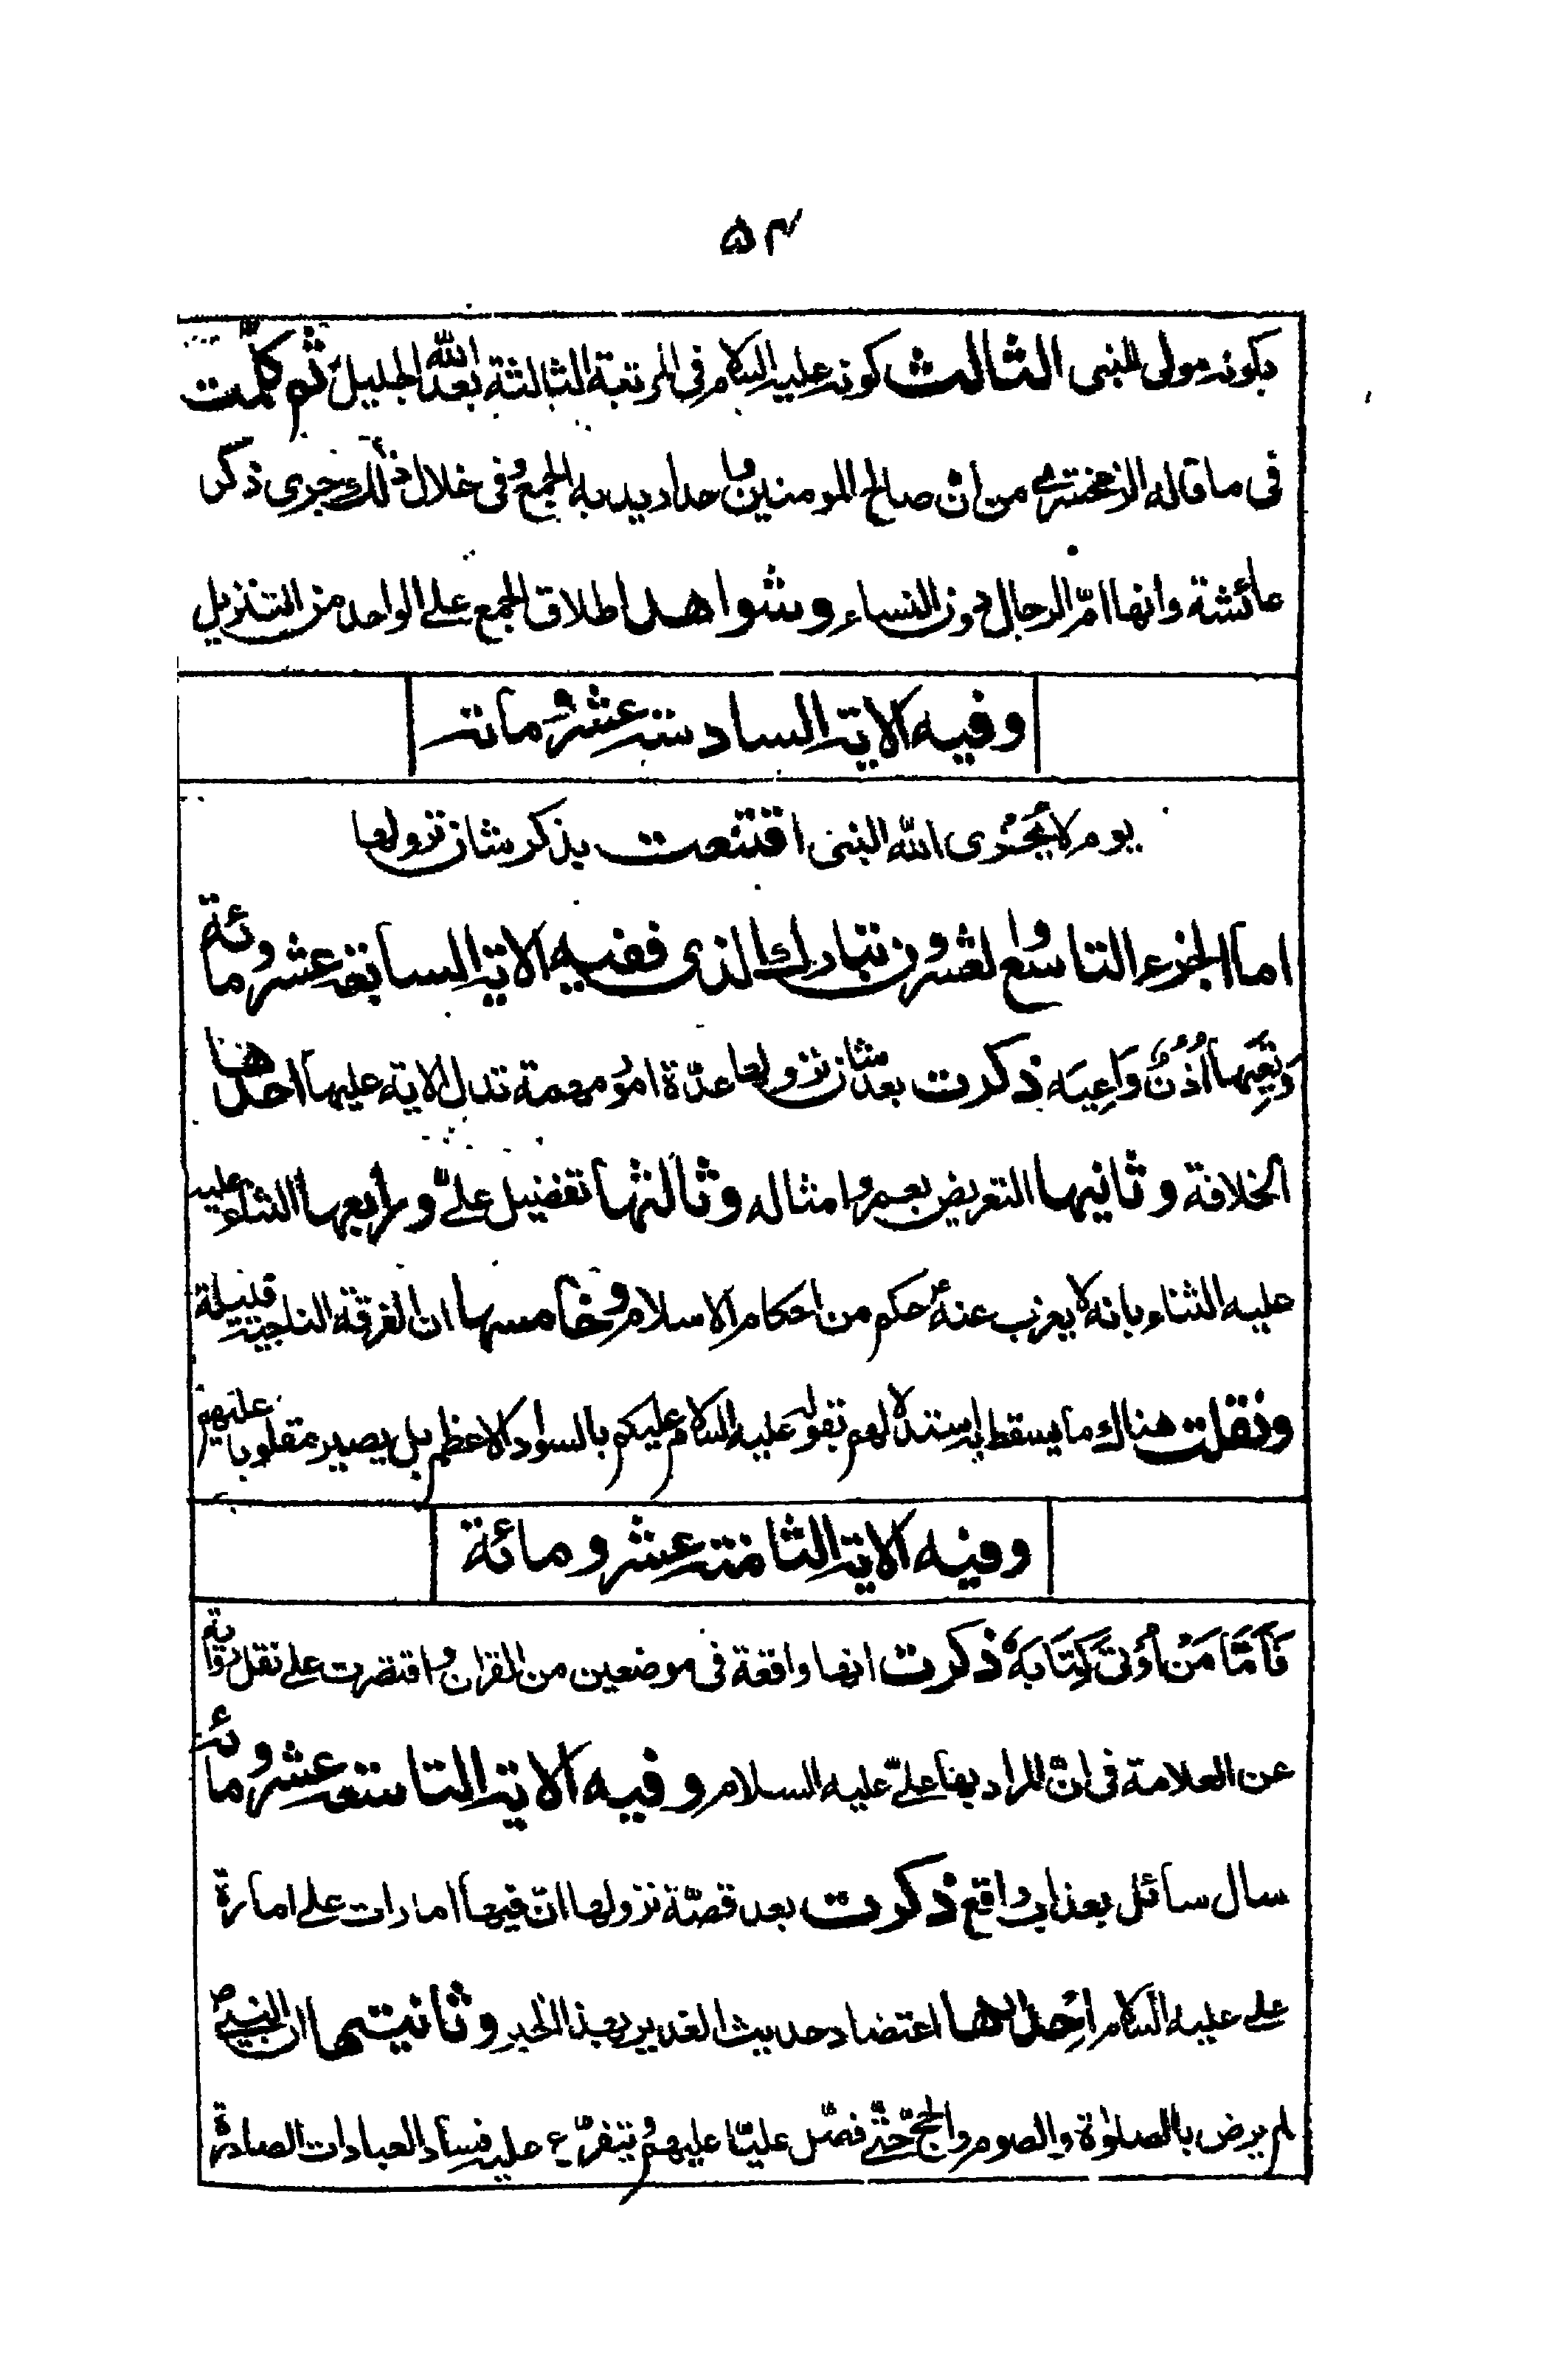 ۵۴
بكونه مولى النبى الثالث كونه عليه السلام فى المرتبة الثالثة بعد الله الجليل ثم تكلمت
فى ما قاله الزمخشرى من ان صالح المومنين واحد اريد به الجمع وفى خلال ذلك جرى ذكر
عائشة وانها امّ الرجال دون النساء وشواهد اطلاق الجمع على الواحد من التنزيل
وفيه الاية السادسة عشر ومائة
يوم لا يُخْزِى الله النبى اقتنعت بذكر شان نزولها
اما الجزء التاسع والعشرون تبارك الذى ففيه الاية السابعة عشر ومائة
وَتَعِيَهَا اُذُنٌ وَاعِيَه ذكرت بعد شان نزولها عدّة امور مهمة تدل الاية عليها احدها
الخلافة وثانيها التعريض بعمر وامثاله وثالثها تفضيل علىّ ورابعها الثناء عليه
عليه الثناء بانه لا يعزب عنه حكم من احكام الاسلام وخامسها ان الفرقة الناجية قليلة
ونقلت هناك ما يسقط به استدلالهم بقوله عليه السلام عليكم بالسواد الاعظم بل يصير مقلوبا عليهم
وفيه الاية الثامنة عشر ومائة
فَاَمَّا مَنْ اُوْتِىَ كِتَابَهٗ ذكرت انها واقعة فى موضعين من القران واقتصرت على نقل رواية
عن العلامة فى انّ المراد بها علىّ عليه السلام وفيه الاية التاسعة عشر ومائة
سال سائل بعذاب واقع ذكرت بعد قصّة نزولها انّ فيها امارات على امارة
على عليه السلام احدٰها اعتضاد حديث الغدير بهذا الخبر وثانيتها ان النبىّ ص
لم يرض بالصلوٰة والصوم والحجّ حتّى فضّل عليّا عليهم ويتفرّع عليه فساد العبادات الصادرة